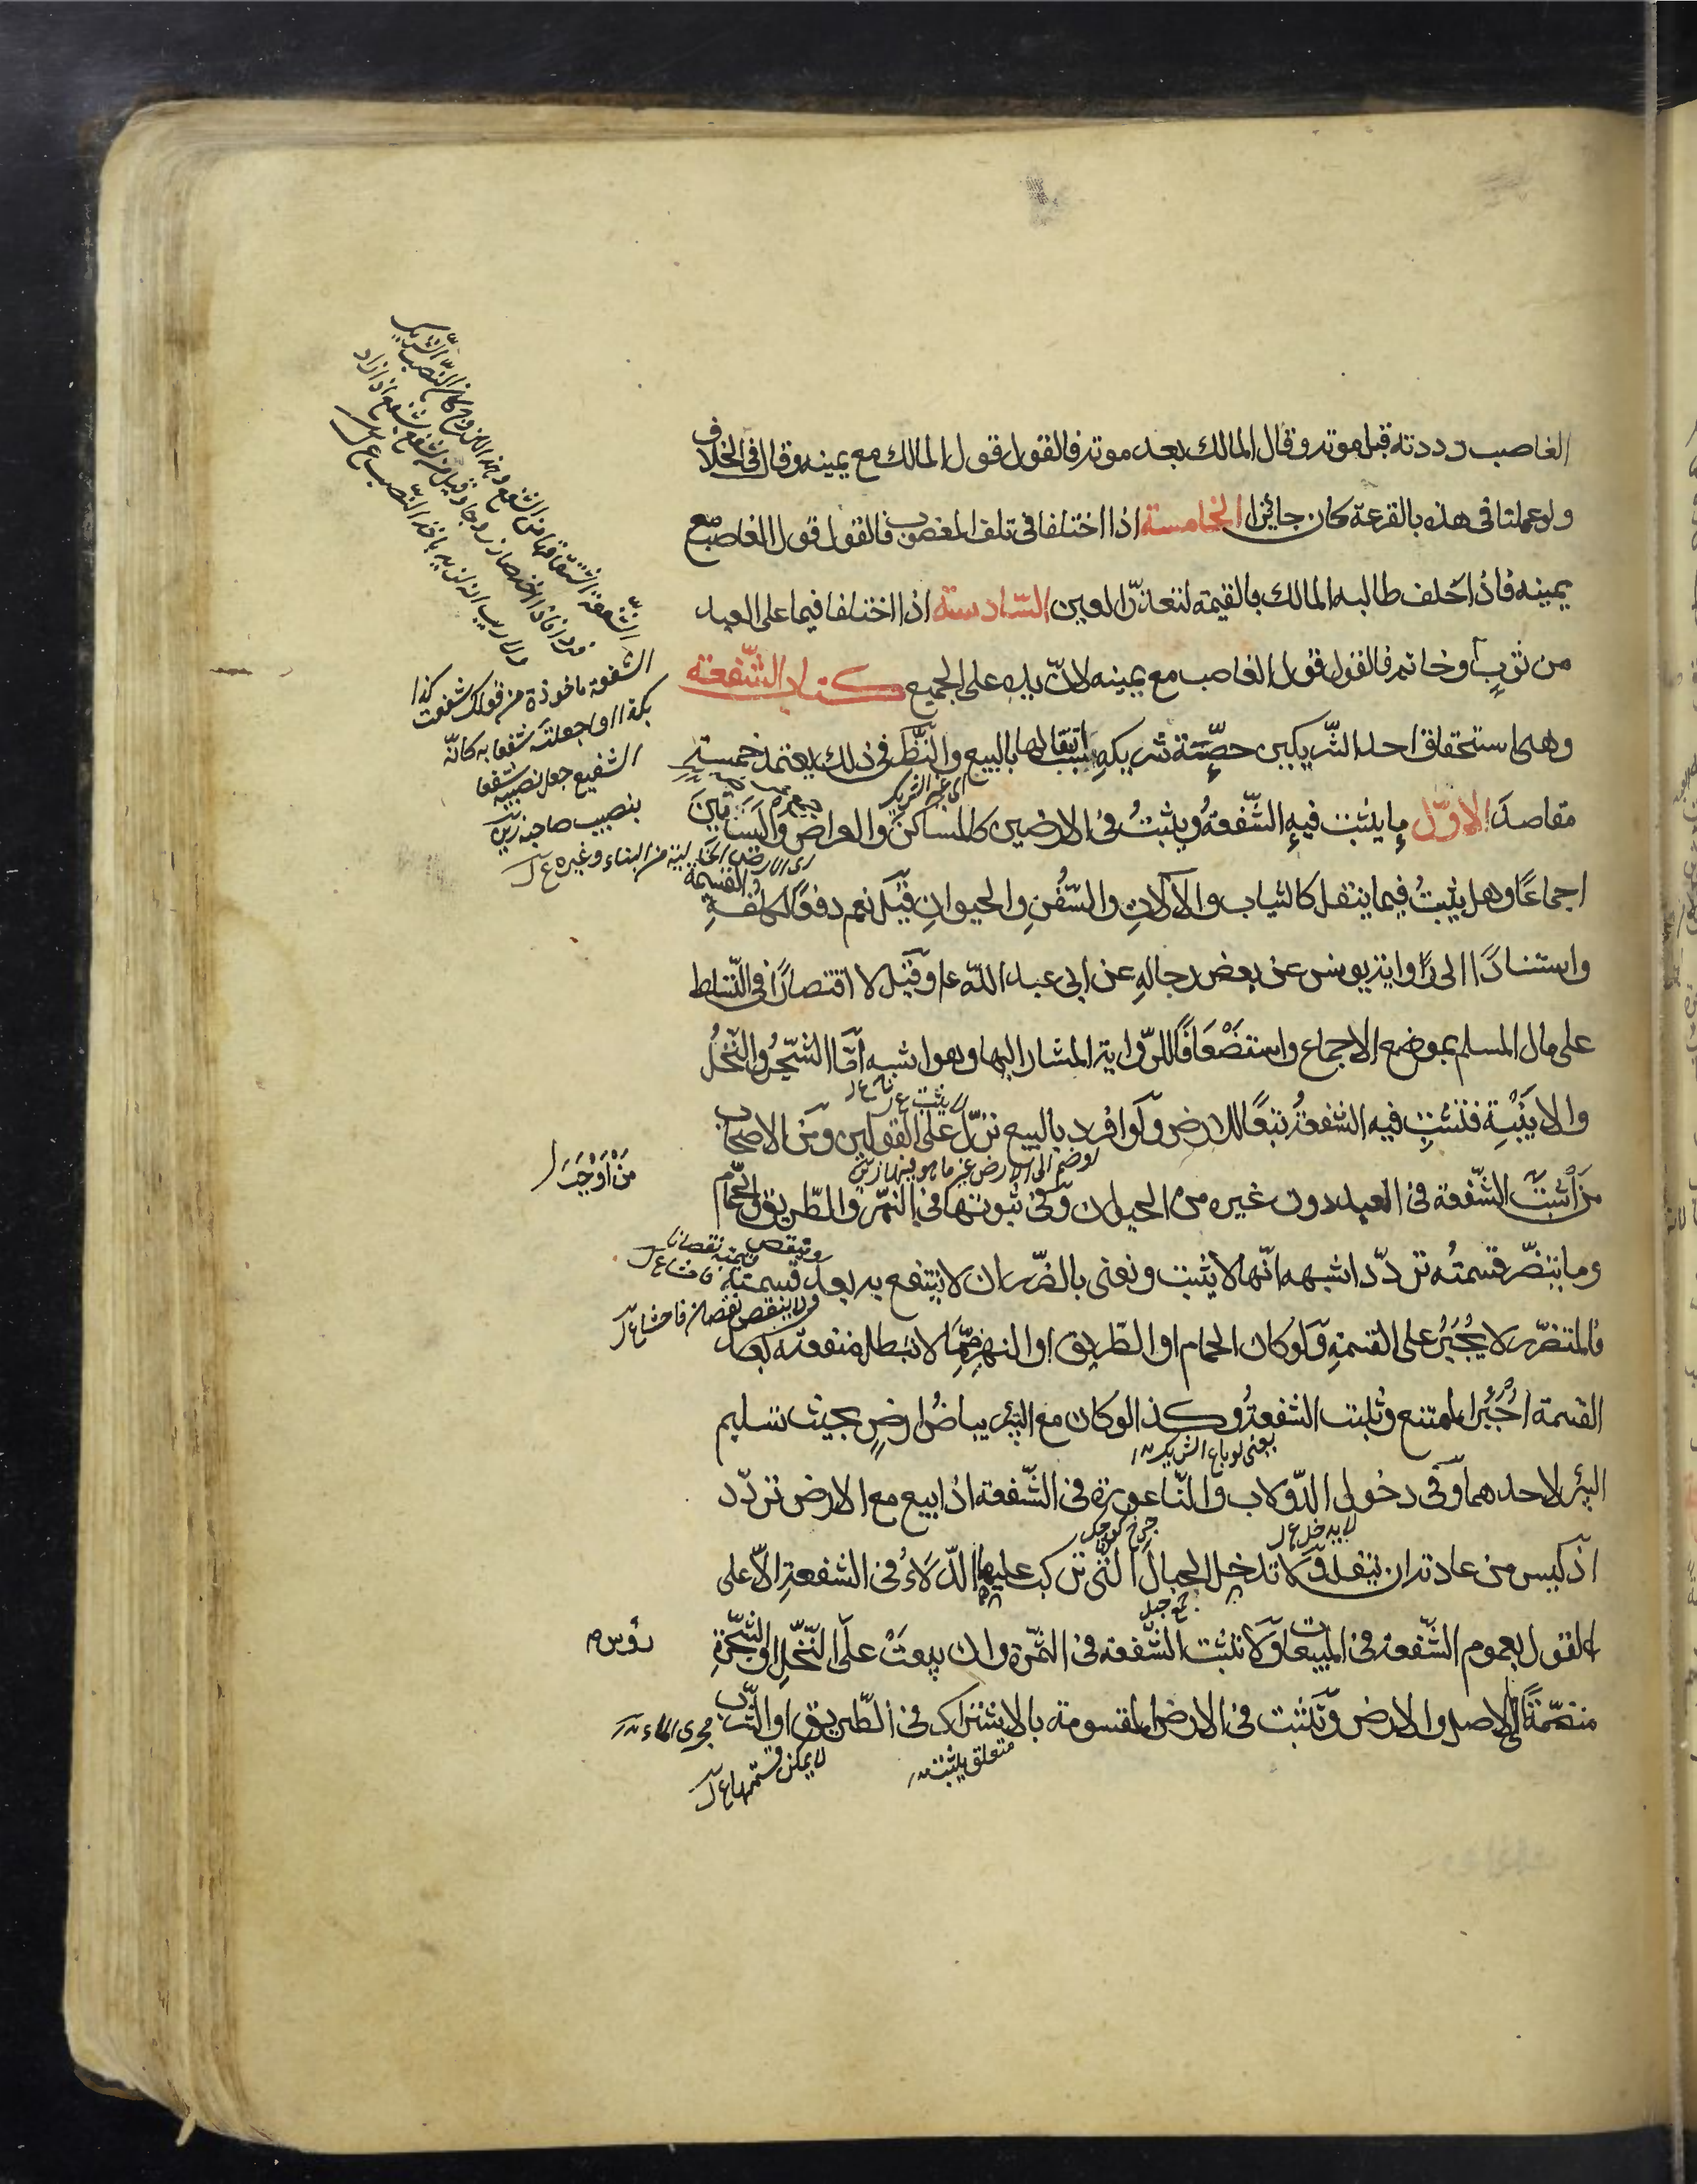 الغاصب رددته قبل موته وقال المالك بعد موته فالقول قول المالك مع يمينه وقال في الخلاف
ولو عملنا في هذه بالقرعة كان جائزا الخامسة اذا اختلفا في تلف المغصوب فالقول قول الغاصب مع
يمينه فاذا حلف طالبه المالك بالقيمة لتعذر العين السادسة اذا اختلفا فيما على العبد
من ثوب او خاتم فالقول قول الغاصب مع يمينه لان يده على الجميع كتاب الشفعة
وهى استحقاق احد الشريكين حصة شريكه بسبب انتقالها بالبيع والنظر في ذلك يعتمد خمسة
مقاصد الاول ما يثبت فيه الشفعة ويثبت في الارضين كالمساكن والعراص والبساتين
اجماعا وهل يثبت فيما ينقل كالثياب والآلات والسفن والحيوان قيل نعم دفعا لكلفة القسمة
واستنادا الى رواية يونس عن بعض رجاله عن ابى عبد الله ع وقيل لا اقتصارا في التسلط
على مال المسلم بموضع الاجماع واستضعافا للرواية المشار اليها وهو اشبه اما الشجر والنخل
والابنية فتثبت فيه الشفعة تبعا للارض ولو افرد بالبيع نزل على القولين ومن الاصحاب
من اثبت الشفعة في العبد دون غيره من الحيوان وفى ثبوتها في النهر والطريق والحمام
وما يتضرر قسمته تردد اشبهه انها لا يثبت ونعنى بالضرر ان لا ينتفع به بعد قسمته
فالمتضرر لا يجبر على القسمة ولو كان الحمام او الطريق او النهر مما لا تبطل منفعته بعد
القسمة اجبر الممتنع وثبتت الشفعة وكذا لو كان مع البئر بياض ارض بحيث تسليم
البئر لاحدهما وفى دخول الدولاب والناعورة في الشفعة اذا بيع مع الارض تردد
اذ ليس من عادته ان ينقل ولا تدخل الحبال التى تركب عليها الدلاء في الشفعة الا على
القول بعموم الشفعة في المبيعات ولا تثبت الشفعة في الثمرة وان بيعت على النخل او الشجرة
منضمة الى الاصل والارض وتثبت في الارض المقسومة بالاشتراك في الطريق او الشرب
الشفعة ماخوذة من قولك شفعت كذا
بكذا اذا جعلته شفعا به كانّ
الشفيع جعل نصيبه شفعا
بنصيب صاحبه
اى الارض الخالية من البناء وغيره
لا يثبت
من اوجب
وينقص قيمته نقصانا
ولا ينقص نقصانا فاحشا
يعنى لو باع الشريك
لا يدخل
جمع حبل
رؤس
مجرى الماء
متعلق بيثبت
لا يمكن قسمتها